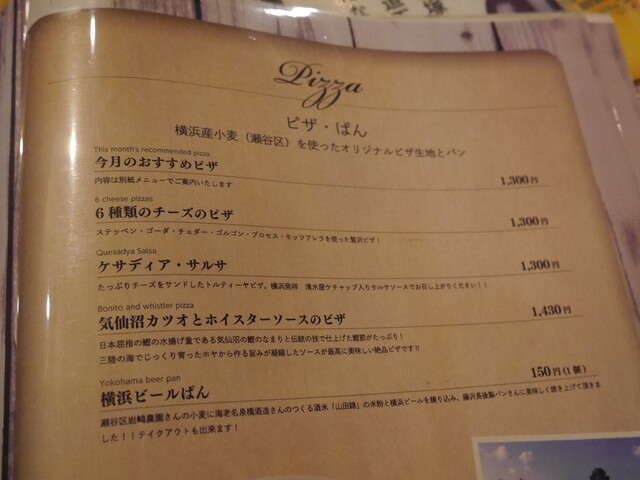 Pizza
ピザ・ぱん
横浜産小麦（瀬谷区）を使ったオリジナルピザ生地とパン
This month's recommended pizza
今月のおすすめピザ
1,300円
内容は別紙メニューでご案内いたします
6 cheese pizzas
6種類のチーズのピザ
1,300円
ステッペン・ゴーダ・チェダー・ゴルゴン・プロセス・モッツアレラを使った贅沢ピザ！
Quesadya Salsa
ケサディア・サルサ
1,300円
たっぷりチーズをサンドしたトルティーヤピザ。横浜発祥 清水屋ケチャップ入りサルサソースでお召し上がりください！！
Bonito and whistler pizza
気仙沼カツオとホイスターソースのピザ
1,430円
日本屈指の鰹の水揚げ量である気仙沼の鰹のなまりと伝統の技で仕上げた鰹節がたっぷり！
三陸の海でじっくり育ったホヤから作る旨みが凝縮したソースが最高に美味しい絶品ピザです!!
Yokohama beer pan
横浜ビールぱん
150円(1個)
瀬谷区岩﨑農園さんの小麦に海老名泉橋酒造さんのつくる酒米「山田錦」の米粉と横浜ビールを練り込み、藤沢長後製パンさんに美味しく焼き上げて頂きま
した！！テイクアウトも出来ます！